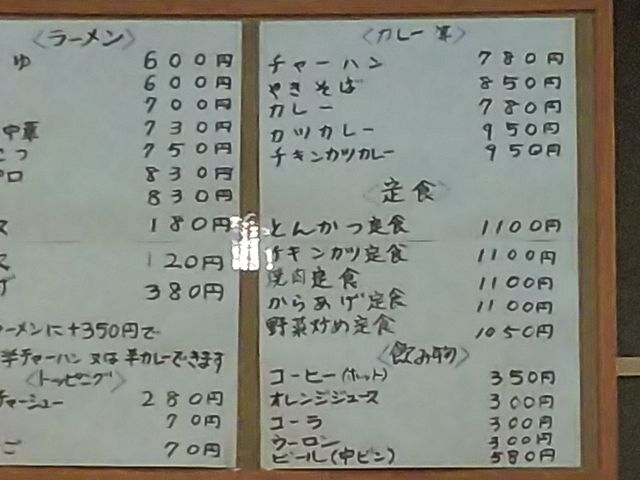 〈ラーメン〉
ゆ 600円
600円
700円
中華 730円
こつ 750円
プロ 830円
830円
ス 180円
ス 120円
げ 380円
ラーメンに+350円で
半チャーハン又は半カレーできます
〈トッピング〉
チャーシュー 280円
70円
ご 70円
〈カレー 等〉
チャーハン 780円
やきそば 850円
カレー 780円
カツカレー 950円
チキンカツカレー 950円
〈定食〉
とんかつ定食 1100円
チキンカツ定食 1100円
焼肉定食 1100円
からあげ定食 1100円
野菜炒め定食 1050円
〈飲み物〉
コーヒー(ホット) 350円
オレンジジュース 300円
コーラ 300円
ウーロン 300円
ビール(中ビン) 580円